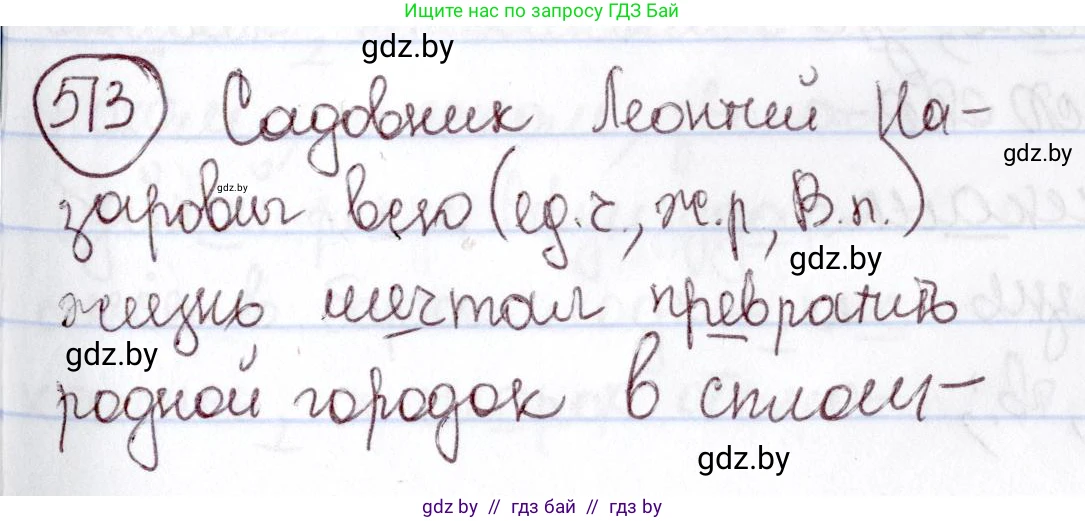 Ищите нас по запросу ГДЗ Бай
gdz.by
513 Садовник Леонтий На-
gdz.by
зарович всю (ед.ч., ж.р., В.п.)
gdz.by
gdz.by
жизнь мечтал превратить
gdz.by
родной городок в сплош-
gdz.by
gdz.by // гдз бай // гдз by